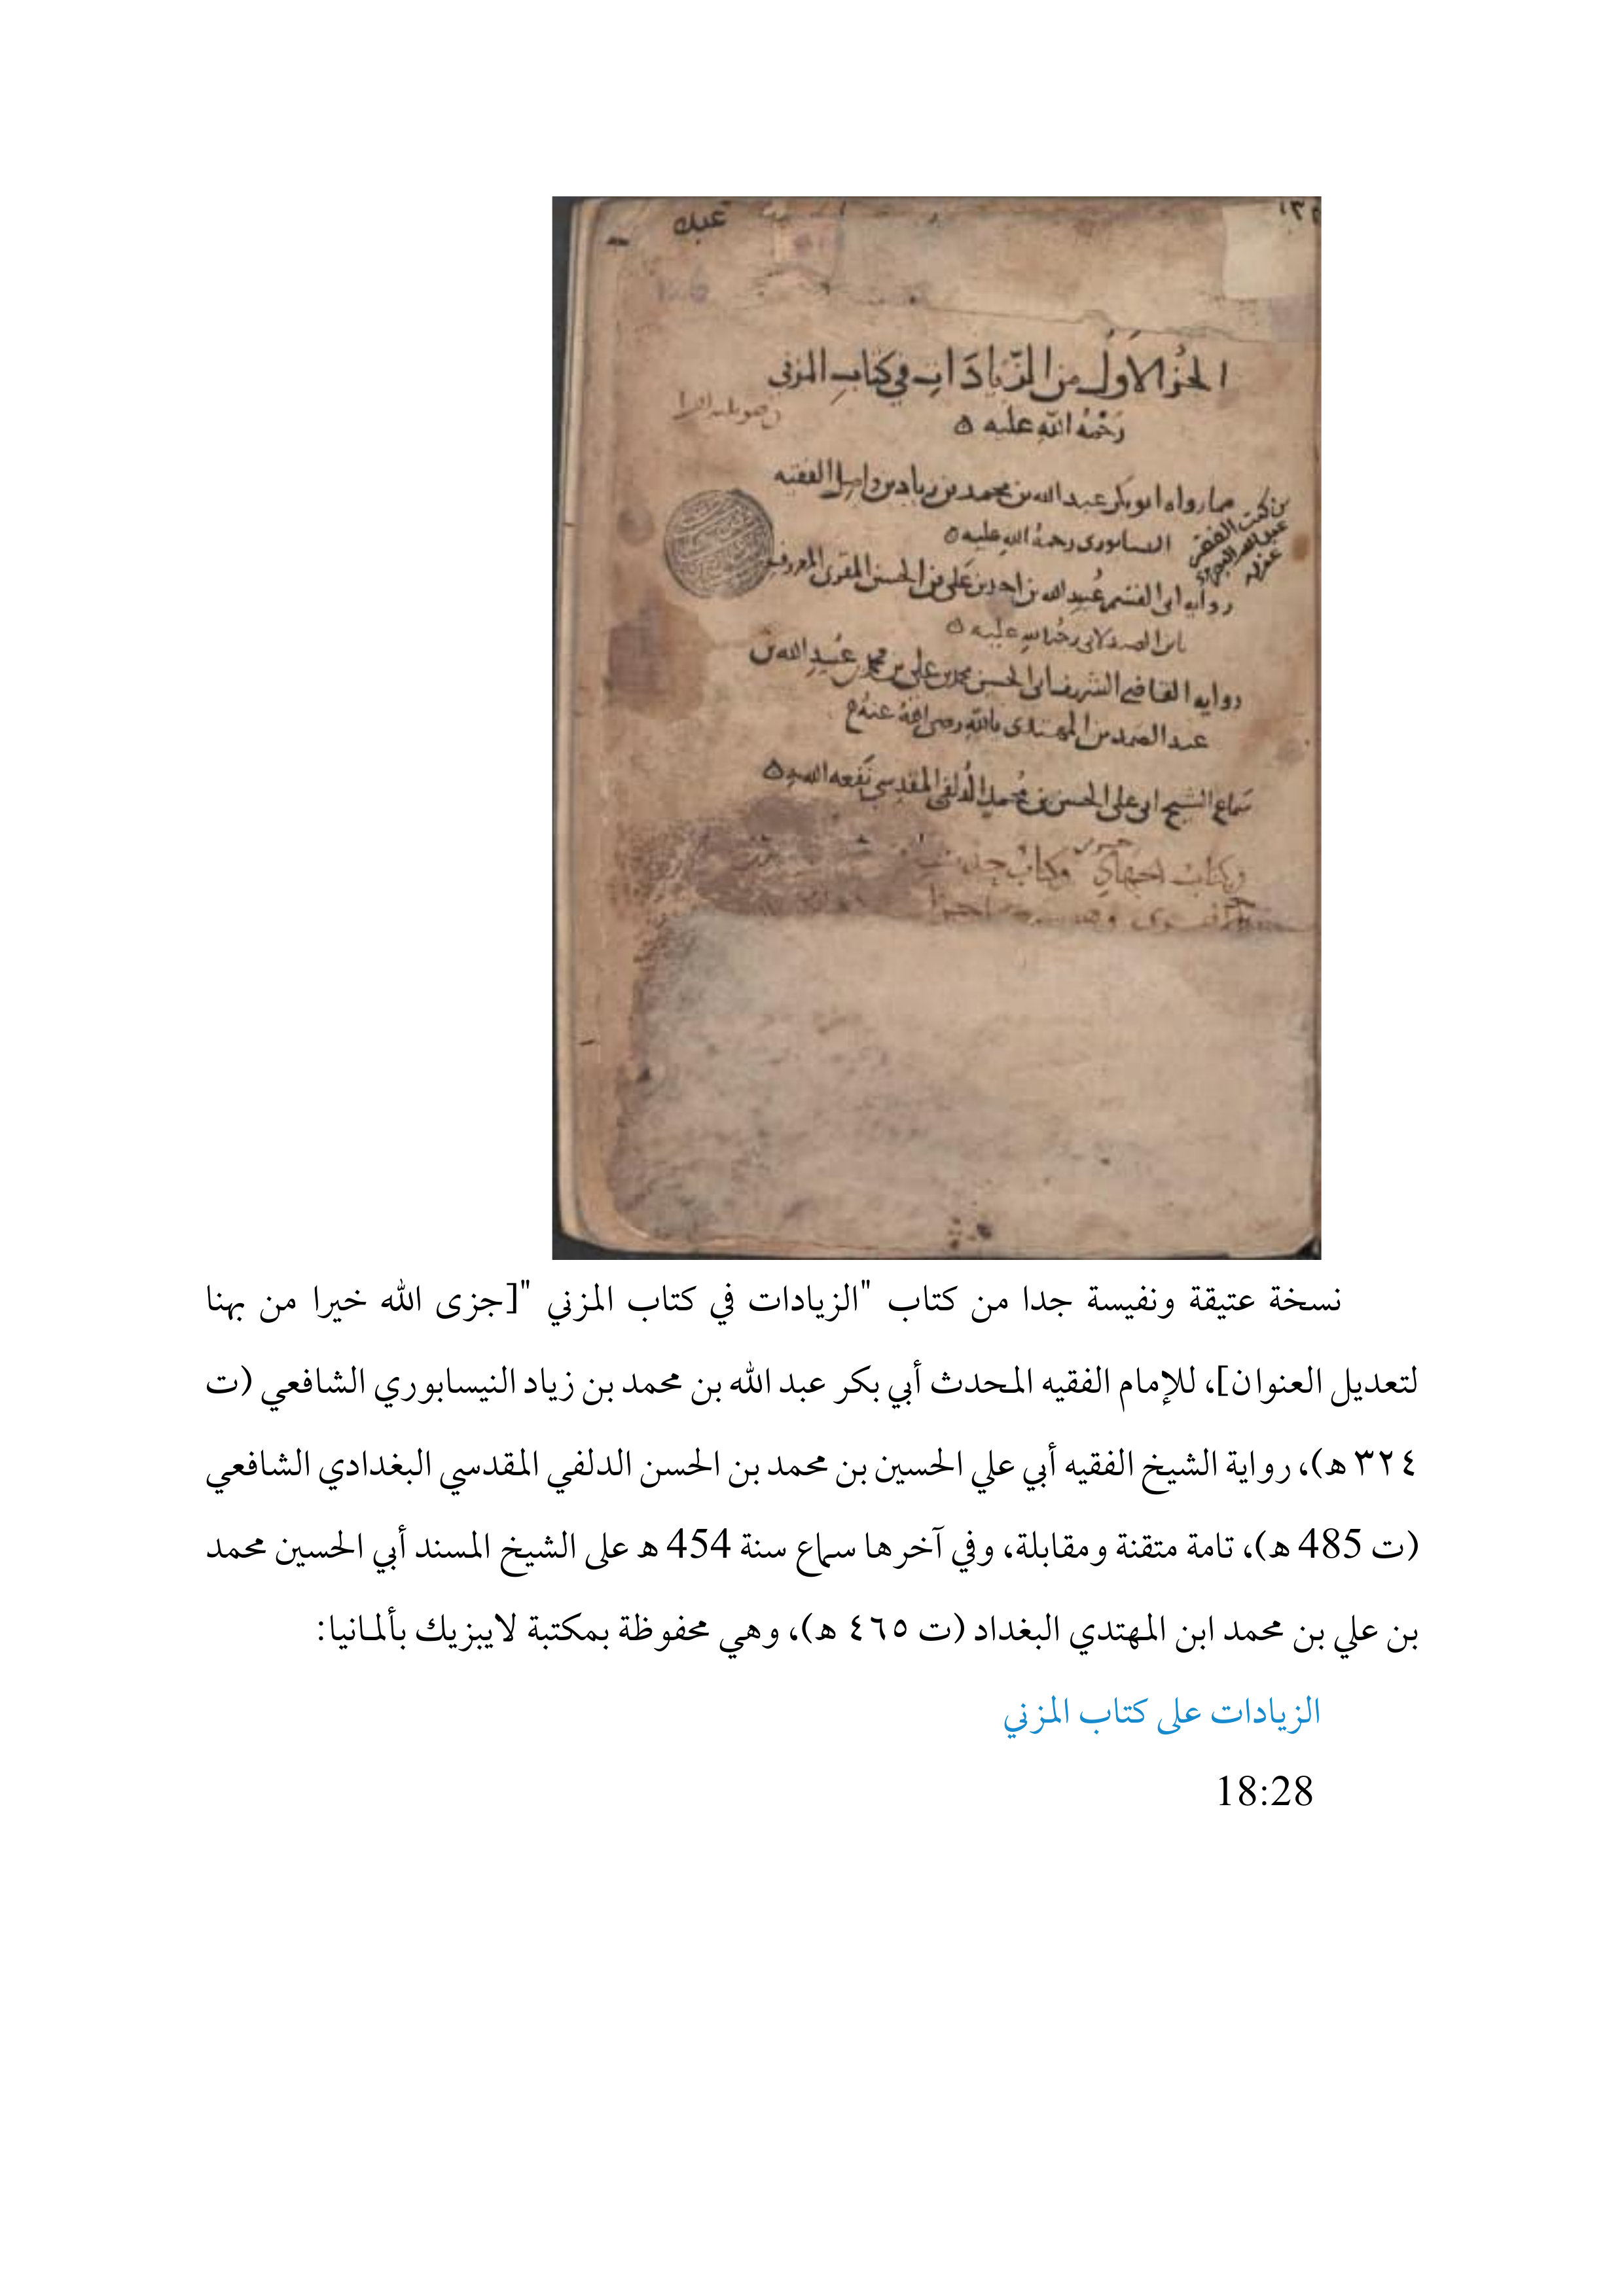 عبك
الجزء الأول من الزيادات في كتاب المزني
رحمة الله عليه ه
مما رواه ابو بكر عبد الله بن محمد بن زياد بن واصل الفقيه
النيسابوري رحمة الله عليه ه
من كتب الفقير
روايه ابي القسم عبيد الله بن احمد بن علي بن الحسين المقرئ المعروف
بابن الصيدلاني رحمة الله عليه ه
روايه القاضي الشريف ابي الحسين محمد بن علي بن محمد بن عبيد الله بن
عبد الصمد بن المهتدي بالله رضي الله عنه
سماع الشيخ ابي علي الحسين بن محمد الدلفي المقدسي نفعه الله به ه
نسخة عتيقة ونفيسة جدا من كتاب "الزيادات في كتاب المزني "[جزى الله خيرا من بهنا
لتعديل العنوان]، للإمام الفقيه المحدث أبي بكر عبد الله بن محمد بن زياد النيسابوري الشافعي (ت
٣٢٤ هـ)، رواية الشيخ الفقيه أبي علي الحسين بن محمد بن الحسن الدلفي المقدسي البغدادي الشافعي
(ت 485 هـ)، تامة متقنة ومقابلة، وفي آخرها سماع سنة 454 هـ على الشيخ المسند أبي الحسين محمد
بن علي بن محمد ابن المهتدي البغداد (ت ٤٦٥ هـ)، وهي محفوظة بمكتبة لايبزيك بألمانيا:
الزيادات على كتاب المزني
18:28